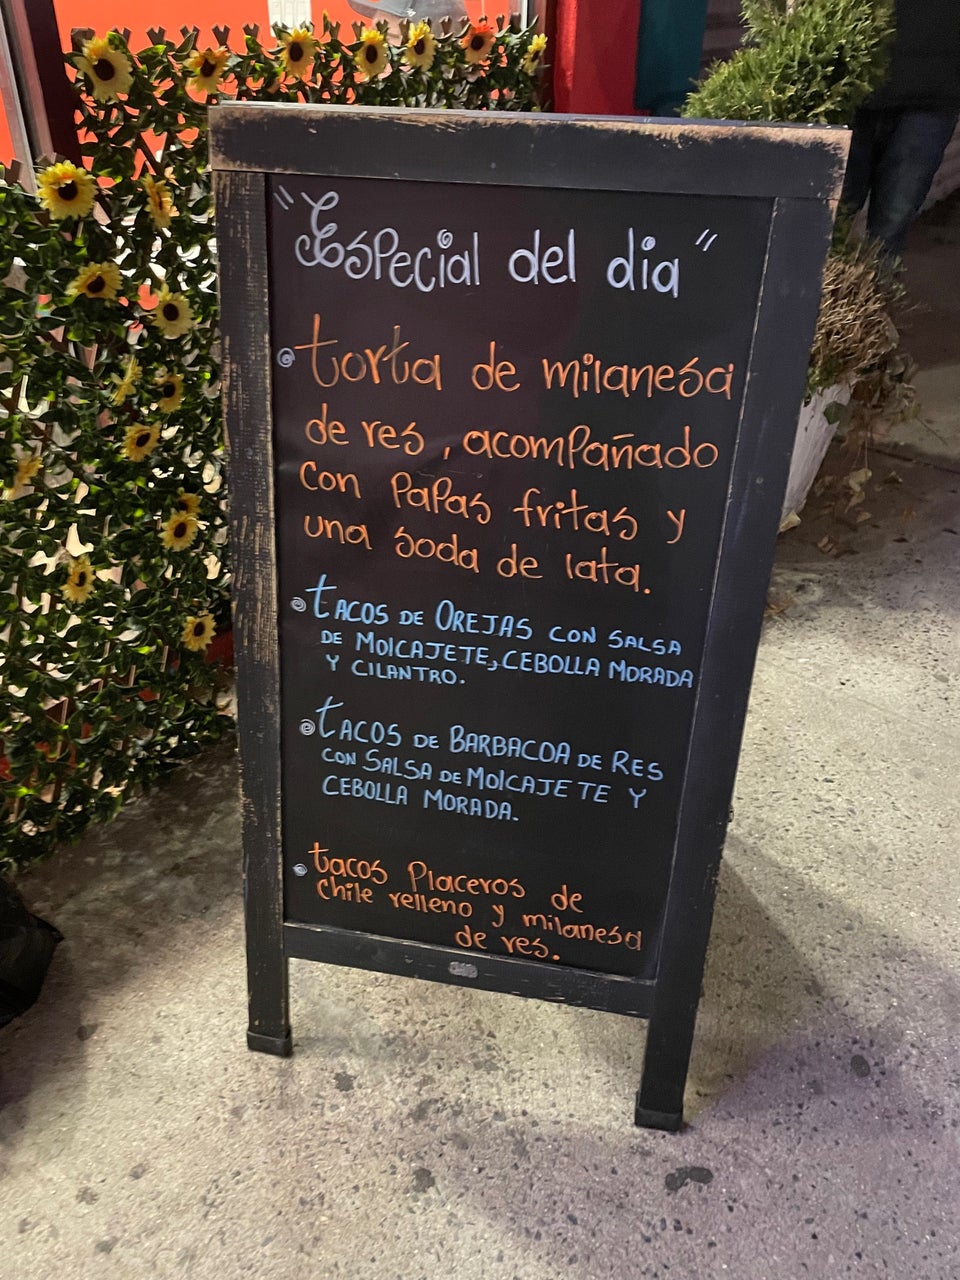 "Especial del dia"
torta de milanesa
de res, acompañado
con papas fritas y
una soda de lata.
tACOS DE OREJAS CON SALSA
DE MOlCAJETE, CEBOLLA MORADA
Y CILANTRO.
tACOS DE BARBACOA DE RES
CON SALSA DE MOlCAJETE Y
CEBOLLA MORADA.
tacos Placeros de
chile relleno y milanesa
de res.